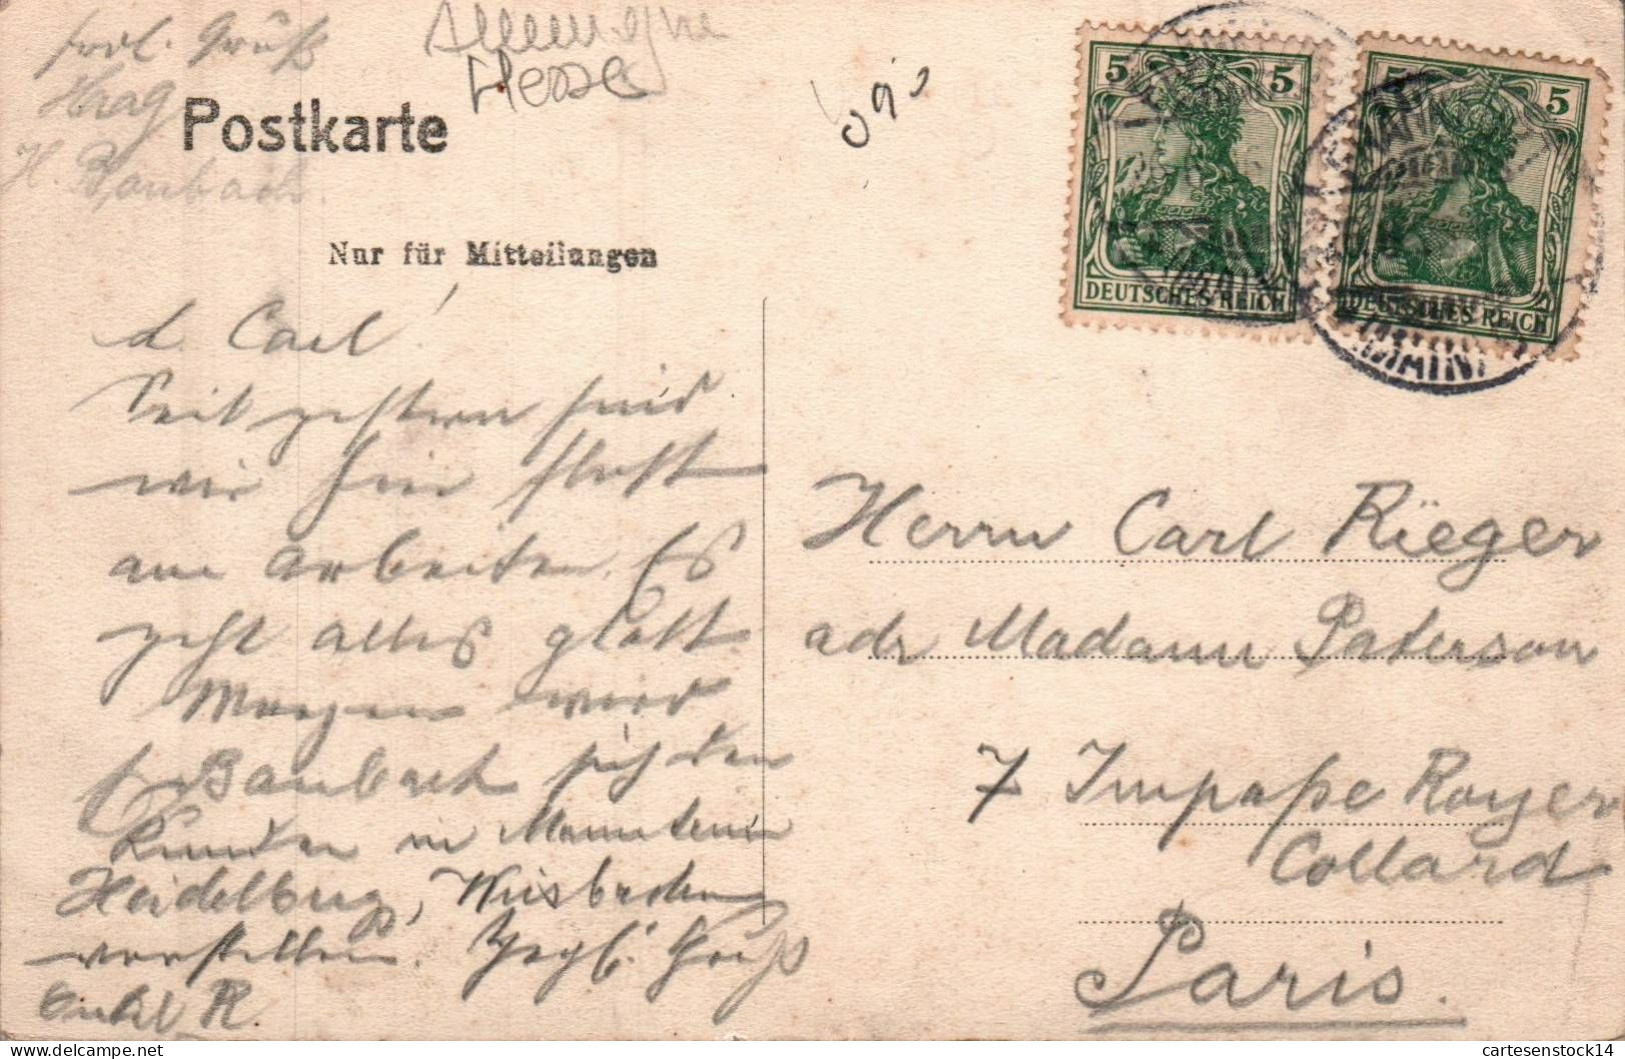 frdl. Gruß
Haag
H. Baubach.
Allemagne
Hesse
Postkarte
Nur für Mitteilungen
5 5
DEUTSCHES REICH
5 5
DEUTSCHES REICH
d. Carl!
Seit gestern sind
wir hier flott
am arbeiten. Es
geht alles glatt
Morgen wird
H. Baubach sich den
Kunden in
Heidelberg, Wiesbaden
vorstellen. Hrzl. Gruß
Onkel R.
Herrn Carl Rieger
adr Madam Paterson
7 Impaße Royer
Collard
Paris.
delcampe.net
cartesenstock14